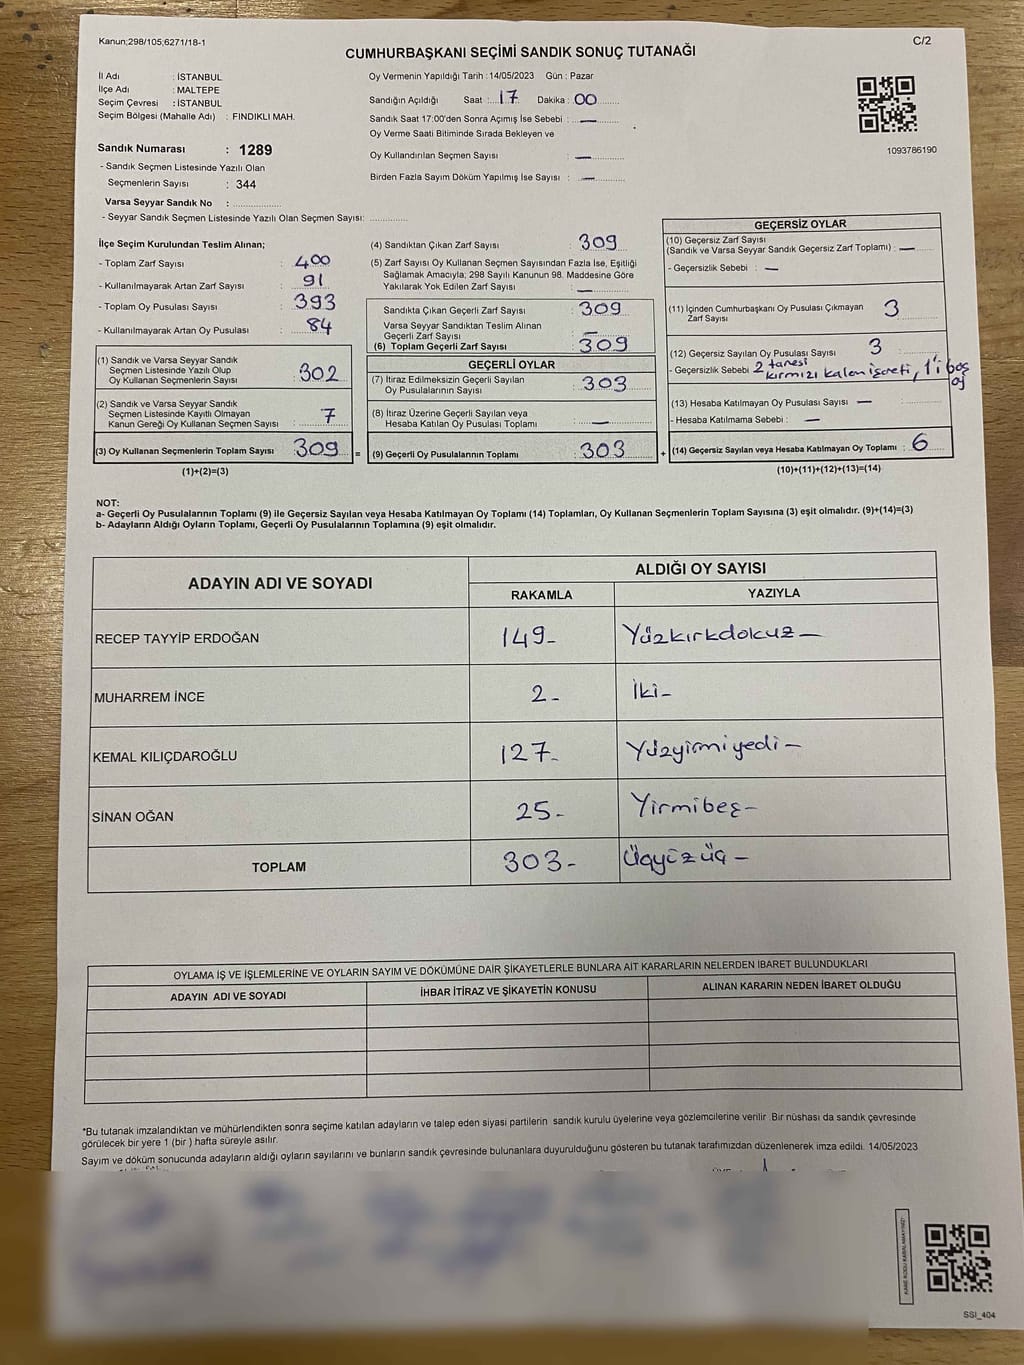 Kanun;298/105;6271/18-1
C/2
CUMHURBAŞKANI SEÇİMİ SANDIK SONUÇ TUTANAĞI
İl Adı : İSTANBUL
İlçe Adı : MALTEPE
Seçim Çevresi : İSTANBUL
Seçim Bölgesi (Mahalle Adı) : FINDIKLI MAH.
Sandık Numarası : 1289
- Sandık Seçmen Listesinde Yazılı Olan
Seçmenlerin Sayısı : 344
Varsa Seyyar Sandık No : ................
- Seyyar Sandık Seçmen Listesinde Yazılı Olan Seçmen Sayısı: ............
Oy Vermenin Yapıldığı Tarih : 14/05/2023 Gün : Pazar
Sandığın Açıldığı Saat : 17 Dakika : 00
Sandık Saat 17:00'den Sonra Açımış İse Sebebi : —
Oy Verme Saati Bitiminde Sırada Bekleyen ve
Oy Kullandırılan Seçmen Sayısı : —
Birden Fazla Sayım Döküm Yapılmış İse Sayısı : —
1093786190
İlçe Seçim Kurulundan Teslim Alınan;
- Toplam Zarf Sayısı : 400
- Kullanılmayarak Artan Zarf Sayısı : 91
- Toplam Oy Pusulası Sayısı : 393
- Kullanılmayarak Artan Oy Pusulası : 84
(1) Sandık ve Varsa Seyyar Sandık
Seçmen Listesinde Yazılı Olup
Oy Kullanan Seçmenlerin Sayısı : 302
(2) Sandık ve Varsa Seyyar Sandık
Seçmen Listesinde Kayıtlı Olmayan
Kanun Gereği Oy Kullanan Seçmen Sayısı : 7
(3) Oy Kullanan Seçmenlerin Toplam Sayısı : 309 =
(1)+(2)=(3)
(4) Sandıktan Çıkan Zarf Sayısı : 309
(5) Zarf Sayısı Oy Kullanan Seçmen Sayısından Fazla İse, Eşitliği
Sağlamak Amacıyla; 298 Sayılı Kanunun 98. Maddesine Göre
Yakılarak Yok Edilen Zarf Sayısı : —
Sandıkta Çıkan Geçerli Zarf Sayısı : 309
Varsa Seyyar Sandıktan Teslim Alınan
Geçerli Zarf Sayısı : —
(6) Toplam Geçerli Zarf Sayısı : 309
GEÇERLİ OYLAR
(7) İtiraz Edilmeksizin Geçerli Sayılan
Oy Pusulalarının Sayısı : 303
(8) İtiraz Üzerine Geçerli Sayılan veya
Hesaba Katılan Oy Pusulası Toplamı : —
(9) Geçerli Oy Pusulalarının Toplamı : 303 +
GEÇERSİZ OYLAR
(10) Geçersiz Zarf Sayısı
(Sandık ve Varsa Seyyar Sandık Geçersiz Zarf Toplamı) : —
- Geçersizlik Sebebi : —
(11) İçinden Cumhurbaşkanı Oy Pusulası Çıkmayan
Zarf Sayısı : 3
(12) Geçersiz Sayılan Oy Pusulası Sayısı : 3
- Geçersizlik Sebebi 2 tanesi kırmızı kalem işareti, 1'i boş oy
(13) Hesaba Katılmayan Oy Pusulası Sayısı : —
- Hesaba Katılmama Sebebi : —
(14) Geçersiz Sayılan veya Hesaba Katılmayan Oy Toplamı : 6
(10)+(11)+(12)+(13)=(14)
NOT:
a- Geçerli Oy Pusulalarının Toplamı (9) ile Geçersiz Sayılan veya Hesaba Katılmayan Oy Toplamı (14) Toplamları, Oy Kullanan Seçmenlerin Toplam Sayısına (3) eşit olmalıdır. (9)+(14)=(3)
b- Adayların Aldığı Oyların Toplamı, Geçerli Oy Pusulalarının Toplamına (9) eşit olmalıdır.
ADAYIN ADI VE SOYADI
ALDIĞI OY SAYISI
RAKAMLA YAZIYLA
RECEP TAYYİP ERDOĞAN 149- Yüzkırkdokuz-
MUHARREM İNCE 2- İki-
KEMAL KILIÇDAROĞLU 127- Yüzyirmiyedi-
SİNAN OĞAN 25- Yirmibeş-
TOPLAM 303- Üçyüzüç-
OYLAMA İŞ VE İŞLEMLERİNE VE OYLARIN SAYIM VE DÖKÜMÜNE DAİR ŞİKAYETLERLE BUNLARA AİT KARARLARIN NELERDEN İBARET BULUNDUKLARI
ADAYIN ADI VE SOYADI İHBAR İTİRAZ VE ŞİKAYETİN KONUSU ALINAN KARARIN NEDEN İBARET OLDUĞU
*Bu tutanak imzalandıktan ve mühürlendikten sonra seçime katılan adayların ve talep eden siyasi partilerin sandık kurulu üyelerine veya gözlemcilerine verilir Bir nüshası da sandık çevresinde
görülecek bir yere 1 (bir ) hafta süreyle asılır.
Sayım ve döküm sonucunda adayların aldığı oyların sayılarını ve bunların sandık çevresinde bulunanlara duyurulduğunu gösteren bu tutanak tarafımızdan düzenlenerek imza edildi. 14/05/2023
SSI_404